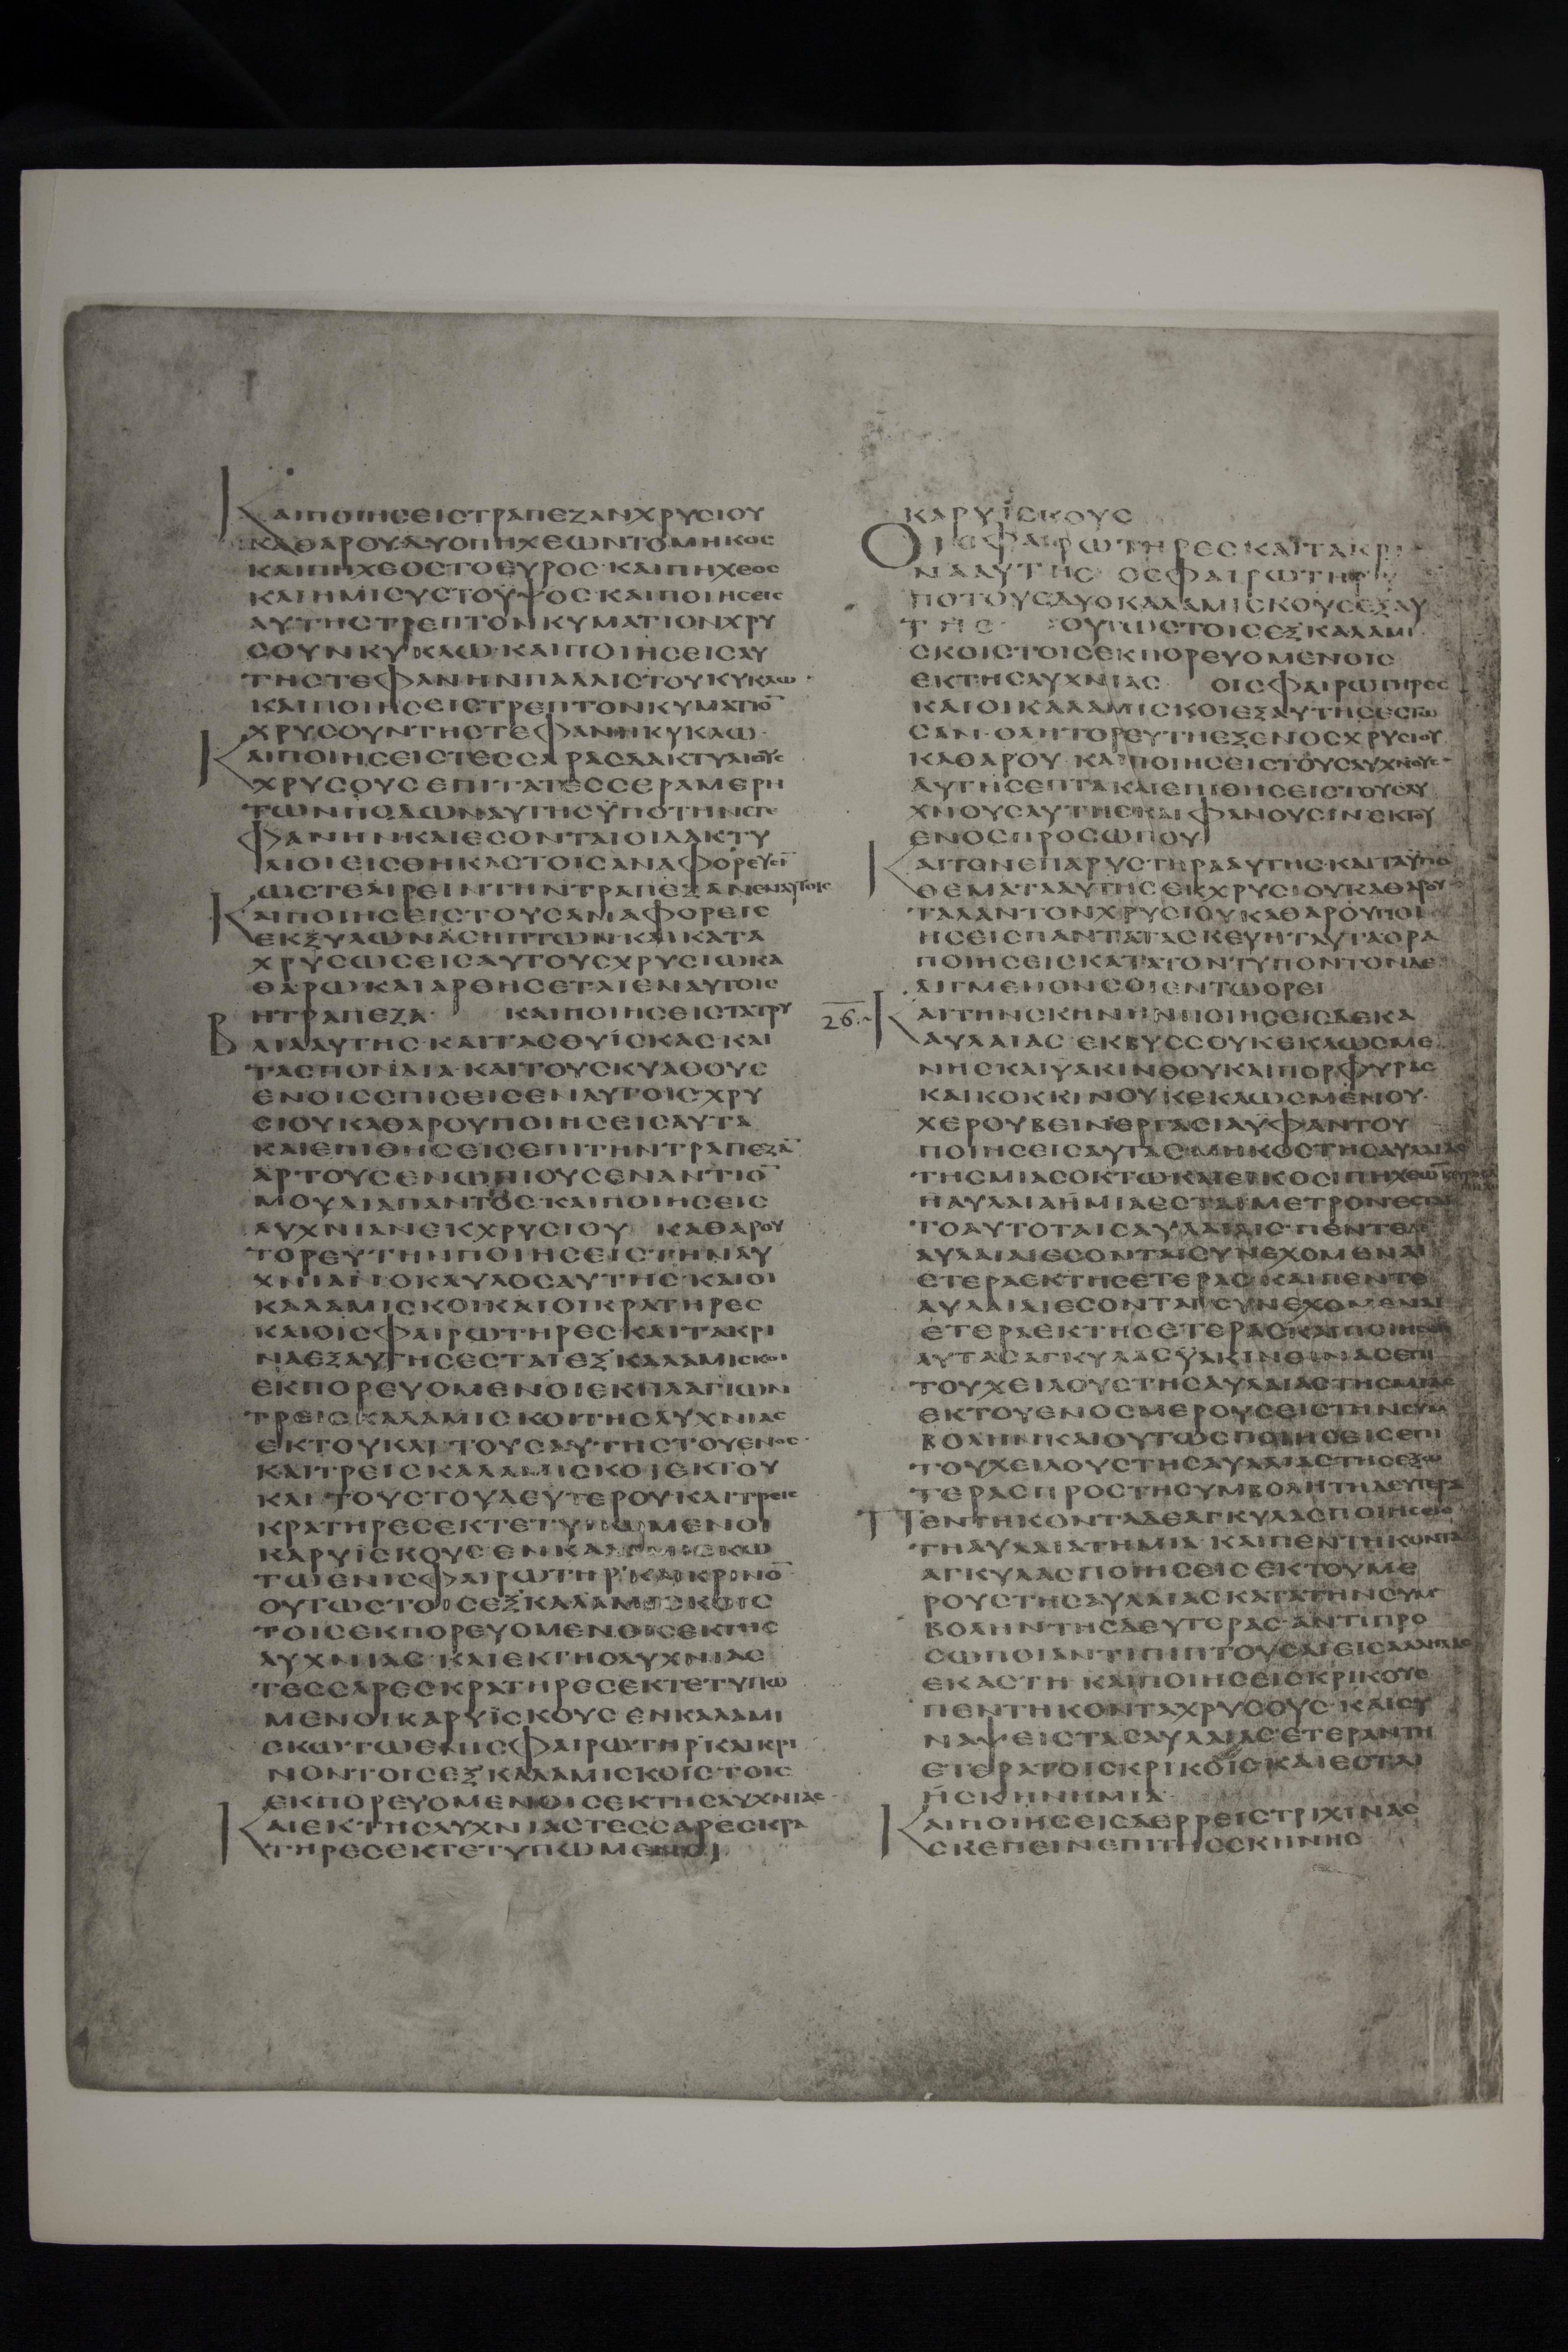 ΚΑΙΠΟΙΗCΕΙCΤΡΑΠΕΖΑΝΧΡΥCΙΟΥ
ΚΑΘΑΡΟΥΔΥΟΠΗΧΕΩΝΤΟΜΗΚΟC
ΚΑΙΠΗΧΕΟCΤΟΕΥΡΟC·ΚΑΙΠΗΧΕΟC
ΚΑΙΗΜΙCΥCΤΟΥΨΟC·ΚΑΙΠΟΙΗCΕΙC
ΑΥΤΗCΤΡΕΠΤΟΝΚΥΜΑΤΙΟΝΧΡΥ
CΟΥΝΚΥΚΛΩ·ΚΑΙΠΟΙΗCΕΙCΑΥ
ΤΗCΤΕΦΑΝΗΝΠΑΛΑΙCΤΟΥΚΥΚΛΩ·
ΚΑΙΠΟΙΗCΕΙCΤΡΕΠΤΟΝΚΥΜΑΤΙΟ̄
ΧΡΥCΟΥΝΤΗCΤΕΦΑΝΗΚΥΚΛΩ·
ΚΑΙΠΟΙΗCΕΙCΤΕCCΑΡΑCΔΑΚΤΥΛΙΟΥC
ΧΡΥCΟΥCΕΠΙΤΑΤΕCCΕΡΑΜΕΡΗ
ΤΩΝΠΟΔΩΝΑΥΤΗCΫΠΟΤΗΝCΤΕ
ΦΑΝΗΝΚΑΙΕCΟΝΤΑΙΟΙΔΑΚΤΥ
ΛΙΟΙΕΙCΘΗΚΑCΤΟΙCΑΝΑΦΟΡΕΥCῙ
ΩCΤΕΑΙΡΕΙΝΤΗΝΤΡΑΠΕΖΑΝΕΝΑΥΤΟΙC
ΚΑΙΠΟΙΗCΕΙCΤΟΥCΑΝΑΦΟΡΕΙC
ΕΚΞΥΛΩΝΑCΗΠΤΩΝ·ΚΑΙΚΑΤΑ
ΧΡΥCΩCΕΙCΑΥΤΟΥCΧΡΥCΙΩΚΑ
ΘΑΡΩΚΑΙΑΡΘΗCΕΤΑΙΕΝΑΥΤΟΙC
ΗΤΡΑΠΕΖΑ· ΚΑΙΠΟΙΗCΕΙCΤΑΤΡΥ
ΒΛΙΑΑΥΤΗC·ΚΑΙΤΑCΘΥΙCΚΑC·ΚΑΙ
ΤΑCΠΟΝΔΙΑ·ΚΑΙΤΟΥCΚΥΑΘΟΥC
ΕΝΟΙCCΠΙCΕΙCΕΝΑΥΤΟΙC·ΧΡΥ
CΙΟΥΚΑΘΑΡΟΥΠΟΙΗCΕΙCΑΥΤΑ
ΚΑΙΕΠΙΘΗCΕΙCΕΠΙΤΗΝΤΡΑΠΕΖᾹ
ΑΡΤΟΥCΕΝΩΠΙΟΥCΕΝΑΝΤΙΟ̄
ΜΟΥΔΙΑΠΑΝΤΟC·ΚΑΙΠΟΙΗCΕΙC
ΛΥΧΝΙΑΝΕΚΧΡΥCΙΟΥ ΚΑΘΑΡΟΥ
ΤΟΡΕΥΤΗΝΠΟΙΗCΕΙCΤΗΝΛΥ
ΧΝΙΑΝΟΚΑΥΛΟCΑΥΤΗC·ΚΑΙΟΙ
ΚΑΛΑΜΙCΚΟΙΚΑΙΟΙΚΡΑΤΗΡΕC
ΚΑΙΟΙCΦΑΙΡΩΤΗΡΕC·ΚΑΙΤΑΚΡΙ
ΝΑΕΞΑΥΤΗCΕCΤΑΙΕΞΚΑΛΑΜΙCΚΟΙ
ΕΚΠΟΡΕΥΟΜΕΝΟΙΕΚΠΛΑΓΙΩΝ
ΤΡΕΙCΚΑΛΑΜΙCΚΟΙΤΗCΛΥΧΝΙΑC
ΕΚΤΟΥΚΛΙΤΟΥCΑΥΤΗCΤΟΥΕΝΟC·
ΚΑΙΤΡΕΙCΚΑΛΑΜΙCΚΟΙΕΚΤΟΥ
ΚΛΙΤΟΥCΤΟΥΔΕΥΤΕΡΟΥΚΑΙΤΡΕΙC
ΚΡΑΤΗΡΕCΕΚΤΕΤΥΠΩΜΕΝΟΙ
ΚΑΡΥΙCΚΟΥCΕΝΚΑΛΑΜΙCΚΩ
ΤΩΕΝΙCΦΑΙΡΩΤΗΡΚΑΙΚΡΙΝΟ̄
ΟΥΤΩCΤΟΙCΕΞΚΑΛΑΜΙCΚΟΙC
ΤΟΙCΕΚΠΟΡΕΥΟΜΕΝΟΙCΕΚΤΗC
ΛΥΧΝΙΑC·ΚΑΙΕΚΤΗCΛΥΧΝΙΑC
ΤΕCCΑΡΕCΚΡΑΤΗΡΕCΕΚΤΕΤΥΠΩ
ΜΕΝΟΙΚΑΡΥΪCΚΟΥCΕΝΚΑΛΑΜΙ
CΚΩΤΩΕΝΙCΦΑΙΡΩΤΗΡΚΑΙΚΡΙ
ΝΟΝΤΟΙCΕΞΚΑΛΑΜΙCΚΟΙCΤΟΙC
ΕΚΠΟΡΕΥΟΜΕΝΟΙCΕΚΤΗCΛΥΧΝΙΑC
ΚΑΙΕΚΤΗCΛΥΧΝΙΑCΤΕCCΑΡΕCΚΡΑ
ΤΗΡΕCΕΚΤΕΤΥΠΩΜΕΝΟΙ
ΚΑΡΥΙCΚΟΥC
ΟΙCΦΑΙΡΩΤΗΡΕCΚΑΙΤΑΚΡΙ
ΝΑΑΥΤΗC ΟCΦΑΙΡΩΤΗΡΫ
ΠΟΤΟΥCΔΥΟΚΑΛΑΜΙCΚΟΥCΕΞΑΥ
ΤΗC ΟΥΤΩCΤΟΙCΕΞΚΑΛΑΜΙ
CΚΟΙCΤΟΙCΕΚΠΟΡΕΥΟΜΕΝΟΙC
ΕΚΤΗCΛΥΧΝΙΑC ΟΙCΦΑΙΡΩΤΗΡΕC
ΚΑΙΟΙΚΑΛΑΜΙCΚΟΙΕΞΑΥΤΗCΕCΤΩ
CΑΝ·ΟΛΗΤΟΡΕΥΤΗΕΞΕΝΟCΧΡΥCΙΟΥ
ΚΑΘΑΡΟΥ·ΚΑΙΠΟΙΗCΕΙCΤΟΥCΛΥΧΝΟΥC
ΑΥΤΗCΕΠΤΑΚΑΙΕΠΙΘΗCΕΙCΤΟΥCΛΥ
ΧΝΟΥCΑΥΤΗCΚΑΙΦΑΝΟΥCΙΝΕΚΤΟΥ
ΕΝΟCΠΡΟCΩΠΟΥ
ΚΑΙΤΟΝΕΠΑΡΥCΤΗΡΑΑΥΤΗC·ΚΑΙΤΑΫΠΟ
ΘΕΜΑΤΑΑΥΤΗCΕΚΧΡΥCΙΟΥΚΑΘΑΡΟΥ
ΤΑΛΑΝΤΟΝΧΡΥCΙΟΥΚΑΘΑΡΟΥΠΟΙ
ΗCΕΙCΠΑΝΤΑΤΑCΚΕΥΗΤΑΥΤΑΟΡΑ
ΠΟΙΗCΕΙCΚΑΤΑΤΟΝΤΥΠΟΝΤΟΝΔΕ
ΔΙΓΜΕΝΟΝCΟΙΕΝΤΩΟΡΕΙ
26. ΚΑΙΤΗΝCΚΗΝΗΝΠΟΙΗCΕΙCΔΕΚΑ
ΑΥΛΑΙΑC·ΕΚΒΥCCΟΥΚΕΚΛΩCΜΕ
ΝΗCΚΑΙΥΑΚΙΝΘΟΥΚΑΙΠΟΡΦΥΡΑC
ΚΑΙΚΟΚΚΙΝΟΥΚΕΚΛΩCΜΕΝΟΥ·
ΧΕΡΟΥΒΕΙΝΕΡΓΑCΙΑΫΦΑΝΤΟΥ
ΠΟΙΗCΕΙCΑΥΤΑC·ΜΗΚΟCΤΗCΑΥΛΑΙΑC
ΤΗCΜΙΑCΟΚΤΩΚΑΙΕΙΚΟCΙΠΗΧΕΩ̄
ΗΑΥΛΑΙΑΗΜΙΑΕCΤΑΙΜΕΤΡΟΝΕCΤΑΙ
ΤΟΑΥΤΟΤΑΙCΑΥΛΑΙΑΙC·ΠΕΝΤΕΔΕ
ΑΥΛΑΙΑΙΕCΟΝΤΑΙCΥΝΕΧΟΜΕΝΑΙ
ΕΤΕΡΑΕΚΤΗCΕΤΕΡΑC·ΚΑΙΠΕΝΤΕ
ΑΥΛΑΙΑΙΕCΟΝΤΑΙCΥΝΕΧΟΜΕΝΑΙ
ΕΤΕΡΑΕΚΤΗCΕΤΕΡΑCΚΑΙΠΟΙΗCΕΙC
ΑΥΤΑCΑΓΚΥΛΑCΫΑΚΙΝΘΙΝΑCΕΠΙ
ΤΟΥΧΕΙΛΟΥCΤΗCΑΥΛΑΙΑCΤΗCΜΙΑC
ΕΚΤΟΥΕΝΟCΜΕΡΟΥCΕΙCΤΗΝCΥΜ
ΒΟΛΗΝΚΑΙΟΥΤΩCΠΟΙΗCΕΙCΕΠΙ
ΤΟΥΧΕΙΛΟΥCΤΗCΑΥΛΑΙΑCΤΗCΕΞΩ
ΤΕΡΑCΠΡΟCΤΗCΥΜΒΟΛΗΤΗΔΕΥΤΕΡΑ
ΠΕΝΤΗΚΟΝΤΑΔΕΑΓΚΥΛΑCΠΟΙΗCΕΙC
ΤΗΑΥΛΑΙΑΤΗΜΙΑ·ΚΑΙΠΕΝΤΗΚΟΝΤΑ
ΑΓΚΥΛΑCΠΟΙΗCΕΙCΕΚΤΟΥΜΕ
ΡΟΥCΤΗCΑΥΛΑΙΑCΚΑΤΑΤΗΝCΥΜ
ΒΟΛΗΝΤΗCΔΕΥΤΕΡΑC·ΑΝΤΙΠΡΟ
CΩΠΟΙΑΝΤΙΠΙΠΤΟΥCΑΙΕΙCΑΛΛΗΛΑC
ΕΚΑCΤΗ·ΚΑΙΠΟΙΗCΕΙCΚΡΙΚΟΥC
ΠΕΝΤΗΚΟΝΤΑΧΡΥCΟΥC·ΚΑΙCΥ
ΝΑΨΕΙCΤΑCΑΥΛΑΙΑCΕΤΕΡΑΝΤΗ
ΕΤΕΡΑΤΟΙCΚΡΙΚΟΙCΚΑΙΕCΤΑΙ
ΗCΚΗΝΗΜΙΑ
ΚΑΙΠΟΙΗCΕΙCΔΕΡΡΕΙCΤΡΙΧΙΝΑC
CΚΕΠΕΙΝΕΠΙΤΗCCΚΗΝΗC